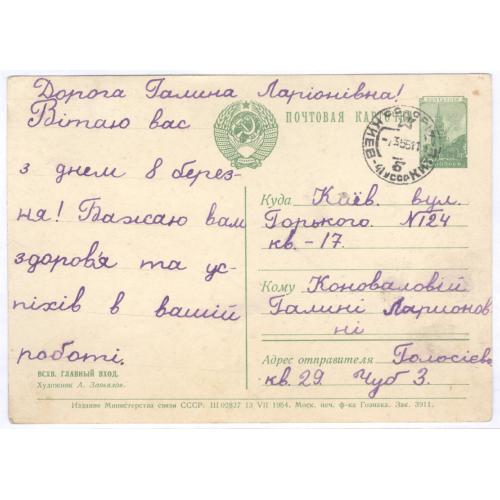 Дорога Галина Ларіонівна!
Вітаю вас
з днем 8 берез-
ня! Бажаю вам
здоров'я та ус-
піхів в вашій
роботі.
ПОЧТОВАЯ КАРТОЧКА
Куда Київ. вул.
Горького. №124
кв.-17.
Кому Коноваловій
Галині Ларионов
ні
Адрес отправителя Голосієво
кв. 29. Чуб З.
ВСХВ. ГЛАВНЫЙ ВХОД.
Художник А. Завьялов.
Издание Министерства связи СССР. Ш 02827 13 VII 1954. Моск. печ. ф-ка Гознака. Зак. 3911.